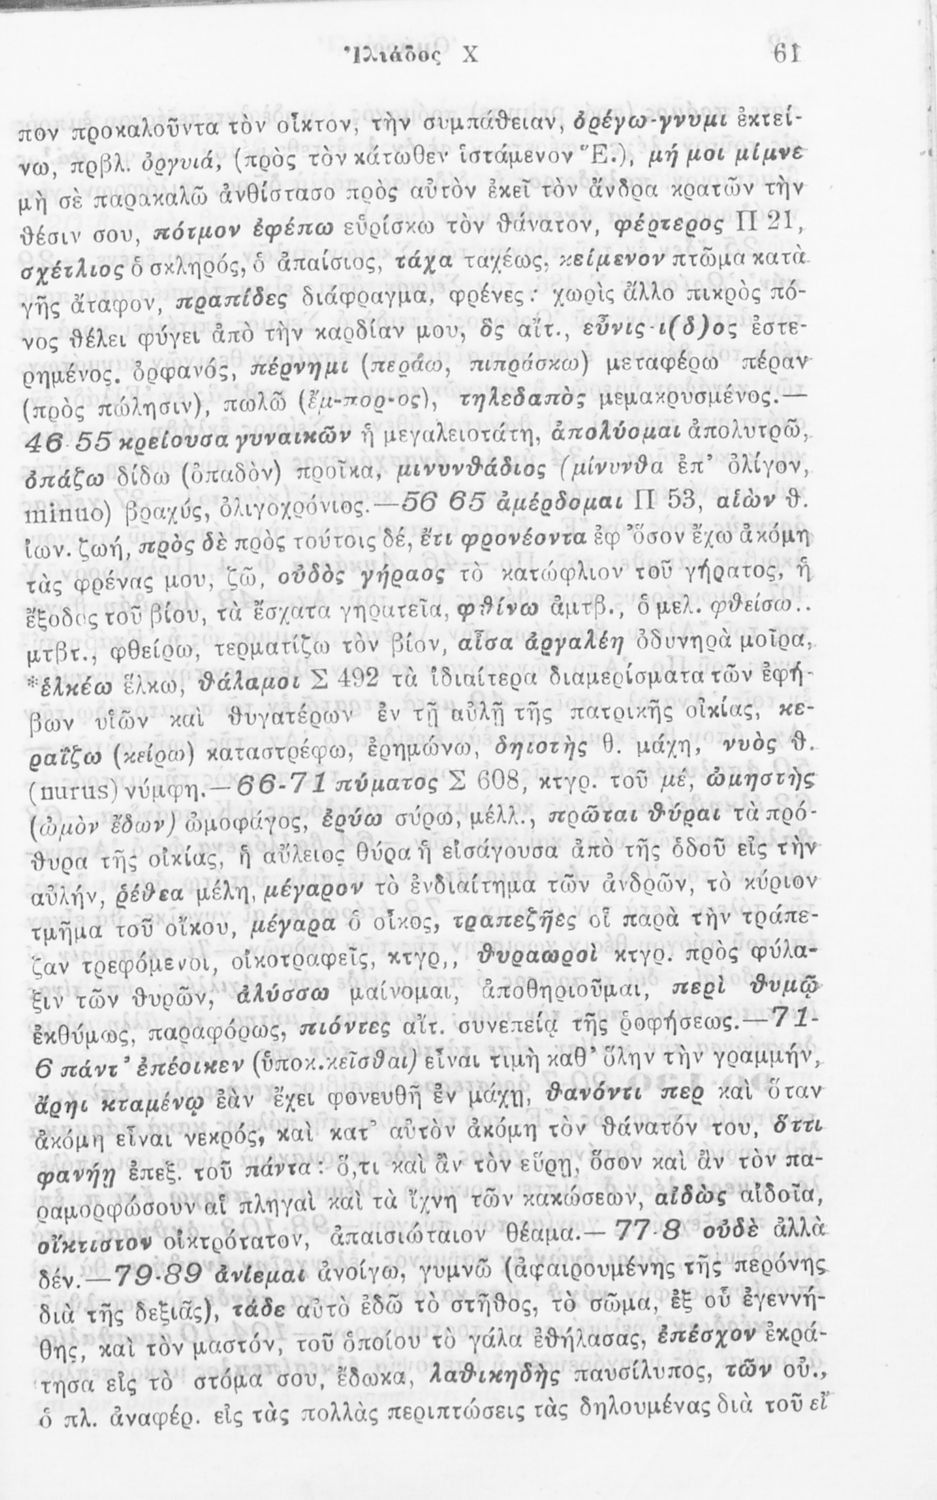 Ἰλιάδος Χ 61
πον προκαλοῦντα τὸν οἶκτον, τὴν συμπάθειαν, ὀρέγω-γνυμι ἐκτεί-
νω, πρβλ. ὀργυιά, (πρὸς τὸν κάτωθεν ἱστάμενον Ἕ.), μή μοι μίμνε
μὴ σὲ παρακαλῶ ἀνθίστασο πρὸς αὐτὸν ἐκεῖ τὸν ἄνδρα κρατῶν τὴν
θέσιν σου, πότμον ἐφέπω εὑρίσκω τὸν θάνατον, φέρτερος Π 21,
σχέτλιος ὁ σκληρός, ὁ ἀπαίσιος, τάχα ταχέως, κείμενον πτῶμα κατὰ
γῆς ἄταφον, πραπίδες διάφραγμα, φρένες· χωρὶς ἄλλο πικρὸς πό-
νος θέλει φύγει ἀπὸ τὴν καρδίαν μου, ὃς αἴτ., εὖνις-ι(δ)ος ἐστε-
ρημένος, ὀρφανός, πέρνημι (περάω, πιπράσκω) μεταφέρω πέραν
(πρὸς πώλησιν), πωλῶ (ἔμ-πορ-ος), τηλεδαπὸς μεμακρυσμένος.—
46-55 κρείουσα γυναικῶν ἡ μεγαλειοτάτη, ἀπολύομαι ἀπολυτρῶ,
ὀπάζω δίδω (ὀπαδὸν) προῖκα, μινυνθάδιος (μίνυνθα ἐπ' ὀλίγον,
minuo) βραχύς, ὀλιγοχρόνιος.—56 65 ἀμέρδομαι Π 53, αἰὼν θ.
ἰων. ζωή, πρὸς δὲ πρὸς τούτοις δέ, ἔτι φρονέοντα ἐφ' ὅσον ἔχω ἀκόμη
τὰς φρένας μου, ζῶ, οὐδὸς γήραος τὸ κατώφλιον τοῦ γήρατος, ἡ
ἔξοδος τοῦ βίου, τὰ ἔσχατα γηρατεῖα, φθίνω ἀμτβ., ὁ μελ. φθείσω..
μτβτ., φθείρω, τερματίζω τὸν βίον, αἶσα ἀργαλέη ὀδυνηρὰ μοῖρα,
*ἑλκέω ἕλκω, θάλαμοι Σ 492 τὰ ἰδιαίτερα διαμερίσματα τῶν ἐφή-
βων υἱῶν καὶ θυγατέρων ἐν τῇ αὐλῇ τῆς πατρικῆς οἰκίας, κε-
ραΐζω (κείρω) καταστρέφω, ἐρημώνω, δηιοτὴς θ. μάχη, νυὸς θ.
(nurus) νύμφη.—66-71 πύματος Σ 608, κτγρ. τοῦ μέ, ὠμηστὴς
(ὠμὸν ἔδων) ὠμοφάγος, ἐρύω σύρω, μέλλ., πρῶται θύραι τὰ πρό-
θυρα τῆς οἰκίας, ἡ αὔλειος θύρα ἡ εἰσάγουσα ἀπὸ τῆς ὁδοῦ εἰς τὴν
αὐλήν, ῥέθεα μέλη, μέγαρον τὸ ἐνδιαίτημα τῶν ἀνδρῶν, τὸ κύριον
τμῆμα τοῦ οἴκου, μέγαρα ὁ οἶκος, τραπεζῆες οἱ παρὰ τὴν τράπε-
ζαν τρεφόμενοι, οἰκοτραφεῖς, κτγρ,, θυραωροὶ κτγρ. πρὸς φύλα-
ξιν τῶν θυρῶν, ἀλύσσω μαίνομαι, ἀποθηριοῦμαι, περὶ θυμῷ
ἐκθύμως, παραφόρως, πιόντες αἴτ. συνεπείᾳ τῆς ῥοφήσεως.—71-
6 πάντ' ἐπέοικεν (ὑποκ. κεῖσθαι) εἶναι τιμὴ καθ' ὅλην τὴν γραμμήν,
ἄρηι κταμένῳ ἐὰν ἔχει φονευθῆ ἐν μάχῃ, θανόντι περ καὶ ὅταν
ἀκόμη εἶναι νεκρός, καὶ κατ' αὐτὸν ἀκόμη τὸν θάνατόν του, ὅττι
φανήῃ ἐπεξ. τοῦ πάντα: ὅ,τι καὶ ἂν τὸν εὕρῃ, ὅσον καὶ ἂν τὸν πα-
ραμορφώσουν αἱ πληγαὶ καὶ τὰ ἴχνη τῶν κακώσεων, αἰδὼς αἰδοῖα,
οἴκτιστον οἰκτρότατον, ἀπαισιώταιον θέαμα.— 77-8 οὐδὲ ἀλλὰ
δέν.—79-89 ἀνίεμαι ἀνοίγω, γυμνῶ (ἀφαιρουμένης τῆς περόνης
διὰ τῆς δεξιᾶς), τάδε αὐτὸ ἐδῶ τὸ στῆθος, τὸ σῶμα, ἐξ οὗ ἐγεννή-
θης, καὶ τὸν μαστόν, τοῦ ὁποίου τὸ γάλα ἐθήλασας, ἐπέσχον ἐκρά-
τησα εἰς τὸ στόμα σου, ἔδωκα, λαθικηδὴς παυσίλυπος, τῶν οὐ.,
ὁ πλ. ἀναφέρ. εἰς τὰς πολλὰς περιπτώσεις τὰς δηλουμένας διὰ τοῦ εἴ